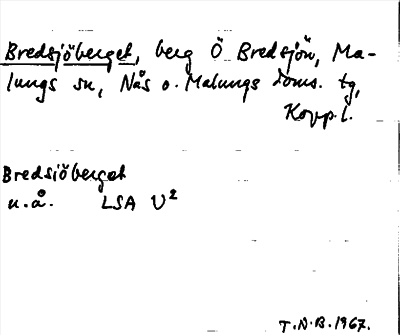 Bredsjöberget, berg Ö Bredsjön, Ma-
lungs sn, Nås o. Malungs doms. tg,
Kopp. l.
Bredsiöberget
u.å. LSA U²
T.N.B. 1967.